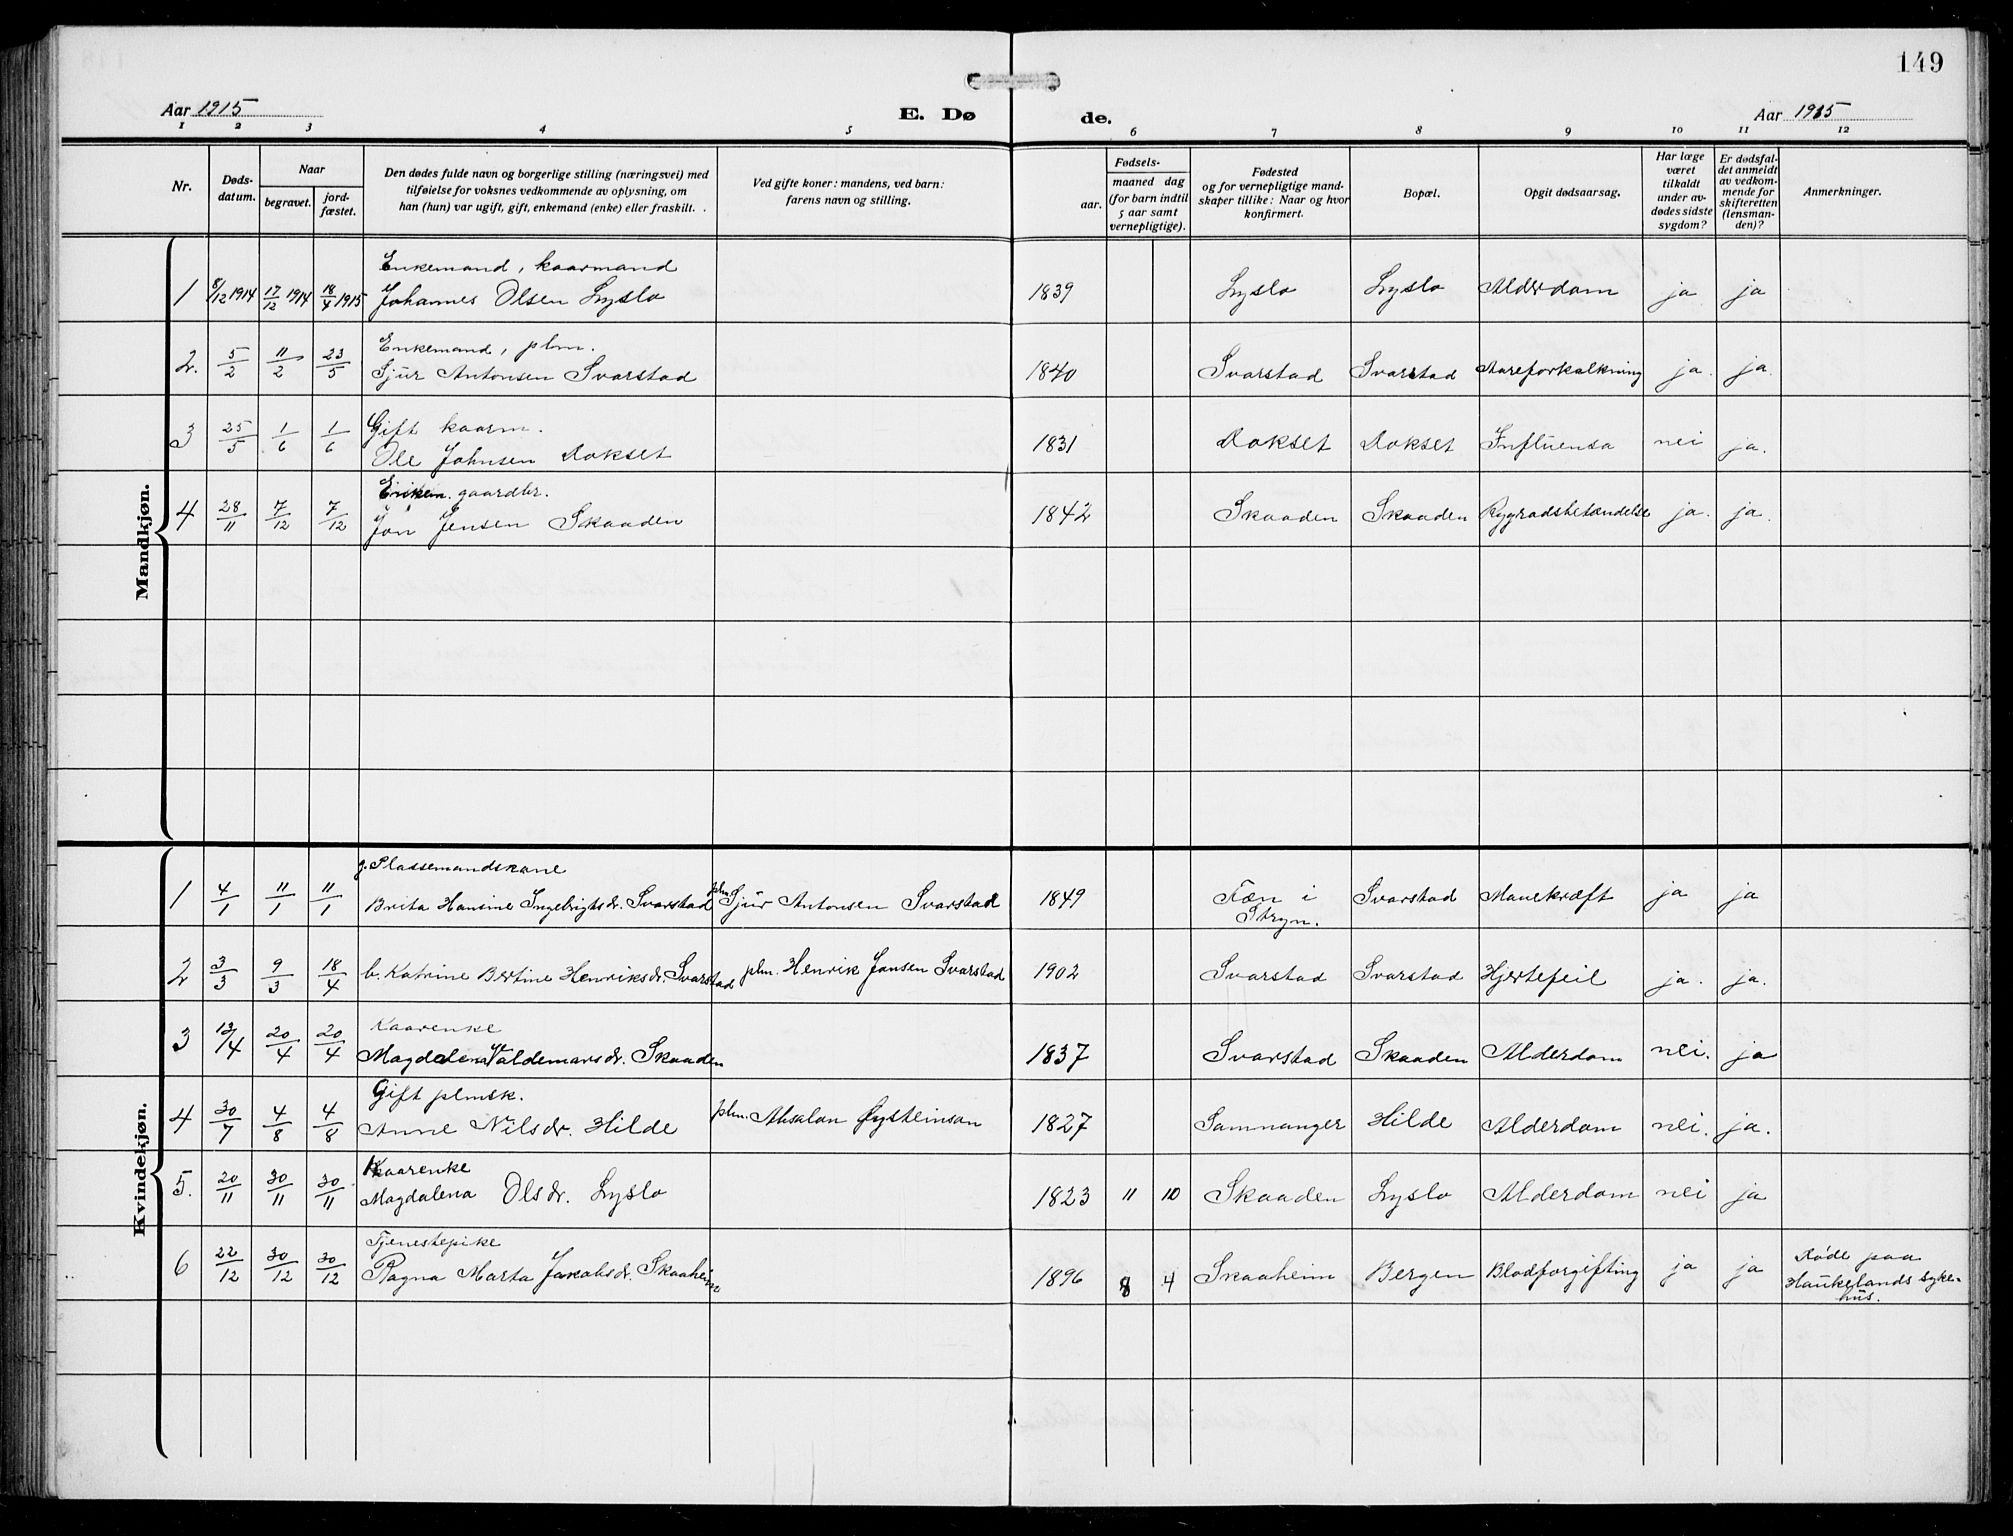 149
Aar 1915
E. Dø
de.
Aar 1915
1 2 3 4 5 6 7 8 9 10 11 12
Nr.
Døds-
datum.
Naar
begravet.
jord-
fæstet.
Den dødes fulde navn og borgerlige stilling (næringsvei) med
tilføielse for voksnes vedkommende av oplysning, om
han (hun) var ugift, gift, enkemand (enke) eller fraskilt.
Ved gifte koner: mandens, ved barn:
farens navn og stilling.
Fødsels-
aar.
maaned dag
(for barn indtil
5 aar samt
vernepligtige).
Fødested
og for vernepligtige mand-
skaper tillike: Naar og hvor
konfirmert.
Bopæl.
Opgit dødsaarsag.
Har læge
været
tilkaldt
under av-
dødes sidste
sygdom?
Er dødsfal-
det anmeldt
av vedkom-
mende for
skifteretten
(lensman-
den)?
Anmerkninger.
Mandkjøn.
Enkemand, kaarmand
1 8/12 1914 17/12 1914 18/4 1915 Johannes Olsen Lyslo 1839 Lyslo Lyslo Alderdom ja ja
Enkemand, plm.
2. 5/2 11/2 23/5 Sjur Antonsen Svarstad 1840 Svarstad Svarstad Aareforkalkning ja. ja.
Gift kaarm.
3 25/5 1/6 1/6 Ole Johnsen Rokset 1831 Rokset Rokset Influensa nei ja.
Enkem. gaardbr.
4 28/11 7/12 7/12 Jon Jensen Skaaden 1842 Skaaden Skaaden Rygradsbetændelse ja. ja.
Kvindekjøn.
g. Plassemandskone
1 4/1 11/1 11/1 Brita Hansine Ingebrigtsdr. Svarstad plm Sjur Antonsen Svarstad 1849 Fæn i Svarstad Mavekræft ja ja
Stryn.
2 3/3 9/3 18/4 b. Katrine Bertine Henriksdr. Svarstad plm. Henrik Jonsen Svarstad 1902 Svarstad Svarstad Hjertefeil ja. ja.
Kaarenke
3 13/4 20/4 20/4 Magdalena Valdemarsdr. Skaaden 1837 Svarstad Skaaden Alderdom nei. ja
Gift plmsk.
4 30/7 4/8 4/8 Anne Nilsdr. Hilde plm. Absalon Øysteinson 1827 Samnanger Hilde Alderdom nei. ja.
Kaarenke
5. 20/11 30/11 30/11 Magdalena Olsdr. Lyslo 1823 11 10 Skaaden Lyslo Alderdom nei ja
Tjenestepike
6 22/12 30/12 30/12 Ragna Marta Jakobsdr. Skaaheim 1896 8 4 Skaaheim Bergen Blodforgifting ja ja Døde paa
Haukelands syke-
hus.